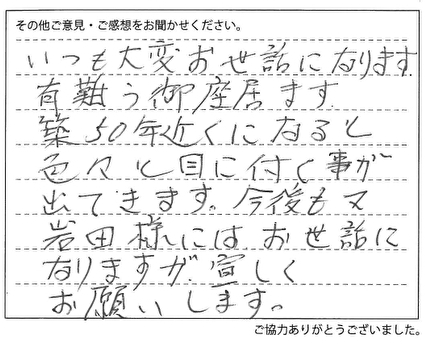 その他ご意見・ご感想をお聞かせください。
いつも大変お世話になります
有難う御座居ます
築50年近くになると
色々と目に付く事が
出てきます。今後もマ
岩田様にはお世話に
なりますが宜しく
お願いします。
ご協力ありがとうございました。